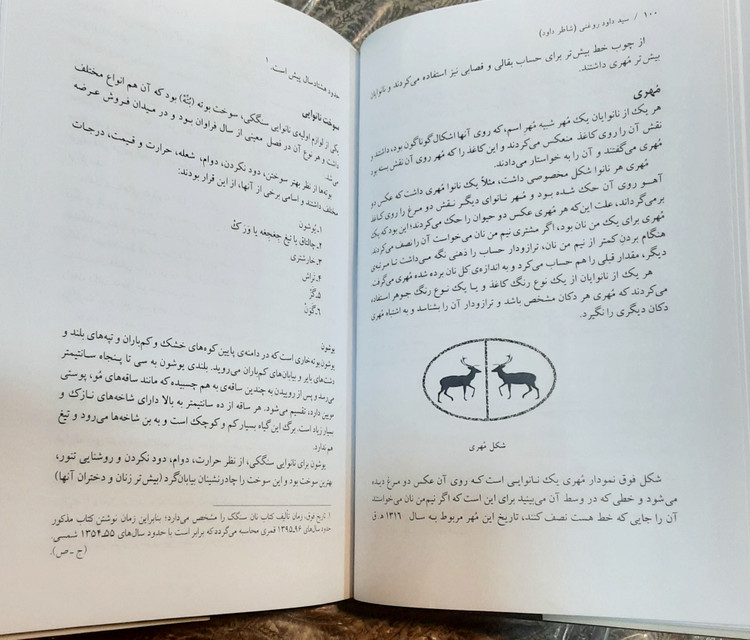 ۱۰۰ / سید داود روغنی (شاطر داود)
از چوب خط بیش‌تر برای حساب بقالی و قصابی نیز استفاده می‌کردند و نانوایان
بیش‌تر مُهری داشتند.
مُهری
هر یک از نانوایان یک مُهر شبیه مُهر اسم، که روی آنها اشکال گوناگون بود، داشتند و
نقش آن را روی کاغذ منعکس می‌کردند و این کاغذ را که مُهر روی آن نقش بسته بود
مُهری می‌گفتند و آن را به خواستار می‌دادند.
مُهری هر نانوا شکل مخصوصی داشت، مثلاً یک نانوا مُهری داشت که عکس دو
آهو روی آن حک شده بود و مُهر نانوای دیگر نقش دو مرغ را روی کاغذ
برمی‌گرداند، علت این‌که هر مُهری عکس دو حیوان را حک می‌کردند؛ این بود که یک
مُهری برای یک من نان بود، اگر مشتری نیم من نان می‌خواست آن را نصف می‌کردند.
هنگام بردن کمتر از نیم من نان، ترازودار حساب را ذهنی نگه می‌داشت تا مرتبه‌ی
دیگر، مقدار قبلی را هم حساب می‌کرد و به اندازه‌ی کل نان برده شده مُهری می‌گرفت.
هر یک از نانوایان از یک نوع رنگ کاغذ و یا یک نوع رنگ جوهر استفاده
می‌کردند که مُهری هر دکان مشخص باشد و ترازودار آن را بشناسد و به اشتباه مُهری
دکان دیگری را نگیرد.
شکل مُهری
شکل فوق نمودار مُهری یک نانوایی است که روی آن عکس دو مرغ دیده
می‌شود و خطی که در وسط آن می‌بینید برای این است که اگر نیم‌من نان می‌خواستند
آن را جایی که خط هست نصف کنند، تاریخ این مُهر مربوط به سال ۱۳۱۶ ه‍ ق
حدود هشتاد سال پیش است. ۱
سوخت نانوایی
یکی از لوازم اولیه‌ی نانوایی سنگکی، سوخت بوته (بُتّه) بود که آن هم انواع مختلف
داشت و هر نوع آن در فصل معینی از سال فراوان بود و در میدان فروش عرضه
می‌شد.
بوته‌ها از نظر بهتر سوختن، دود نکردن، دوام، شعله، حرارت و قیمت، درجات
مختلف داشتند و اسامی برخی از آنها، از این قرار بودند:
۱ـ پُوشون
۲ـ چالتاق یا تیغ جغجغه یا وَرَکْ
۳ـ خارشتری
۴ـ تراش
۵ـ گَزْ
۶ـ گَوَنْ
پوشون
پوشون بوته‌خاری است که در دامنه‌ی پایین کوه‌های خشک و کم‌باران و تپه‌های بلند و
دشت‌های بایر و بیابان‌های کم‌باران می‌روید. بلندی پوشون به سی تا پنجاه سانتیمتر
می‌رسد و پس از روییدن به چندین ساقه‌ی به هم چسبیده که مانند ساقه‌های مُو، پوستی
مویین دارد، تقسیم می‌شود. هر ساقه از ده سانتیمتر به بالا دارای شاخه‌های نازک و
بسیار زیاد است. برگ این گیاه بسیار کم و کوچک است و به بن شاخه‌ها می‌رود و تیغ
هم ندارد.
پوشون برای نانوایی سنگکی، از نظر حرارت، دوام، دود نکردن و روشنایی تنور،
بهترین سوخت بود و این سوخت را چادرنشینان بیابان‌گرد (بیش‌تر زنان و دختران آنها)
۱. تاریخ فوق، زمان تألیف کتاب نان سنگک را مشخص می‌دارد؛ بنابراین زمان نوشتن کتاب مذکور
حدود سال‌های ۹۶ـ۱۳۹۵ قمری محاسبه می‌گردد که برابر است با حدود سال‌های ۵۵ـ۱۳۵۴ شمسی.
(ج ـ ص).